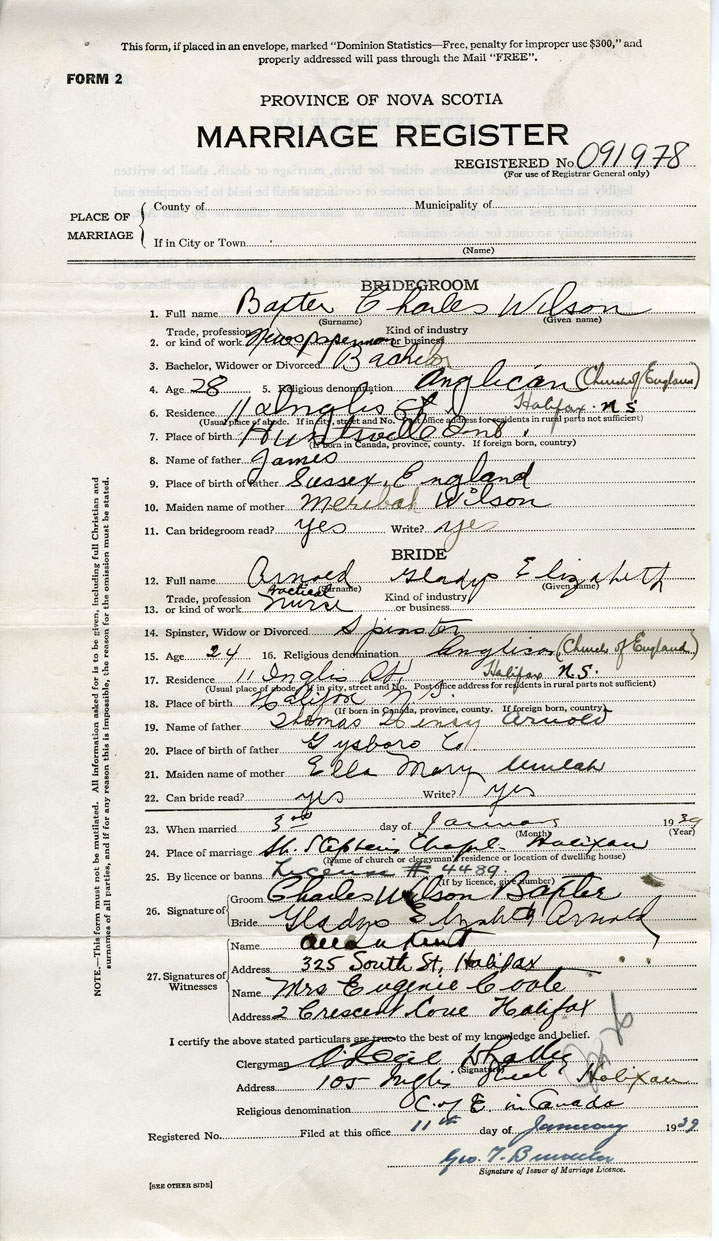 This form, if placed in an envelope, marked "Dominion Statistics—Free, penalty for improper use $300," and
properly addressed will pass through the Mail "FREE".
FORM 2
PROVINCE OF NOVA SCOTIA
MARRIAGE REGISTER
REGISTERED No. 091978
(For use of Registrar General only)
PLACE OF MARRIAGE
County of Municipality of
If in City or Town
(Name)
BRIDEGROOM
1. Full name Baxter Charles Wilson
(Surname) (Given name)
2. Trade, profession or kind of work Newspaperman Kind of industry or business
3. Bachelor, Widower or Divorced Bachelor
4. Age 28 5. Religious denomination Anglican (Church of England)
6. Residence 11 Inglis St. Halifax N S
(Usual place of abode. If in city, street and No. Post office address for residents in rural parts not sufficient)
7. Place of birth Huntsville Ont.
(If born in Canada, province, county. If foreign born, country)
8. Name of father James
9. Place of birth of father Sussex, England
10. Maiden name of mother Meribah Wilson
11. Can bridegroom read? yes Write? yes
BRIDE
12. Full name Arnold Gladys Elizabeth
(Surname) (Given name)
13. Trade, profession or kind of work Practical Nurse Kind of industry or business
14. Spinster, Widow or Divorced Spinster
15. Age 24 16. Religious denomination Anglican (Church of England)
17. Residence 11 Inglis St. Halifax N.S.
(Usual place of abode. If in city, street and No. Post office address for residents in rural parts not sufficient)
18. Place of birth Halifax N.S.
(If born in Canada, province, county. If foreign born, country)
19. Name of father Thomas Henry Arnold
20. Place of birth of father Gysboro Co
21. Maiden name of mother Ella Mary
22. Can bride read? yes Write? yes
23. When married 3rd day of January 1939
(Month) (Year)
24. Place of marriage St. Stephens Chapel Halifax
(Name of church or clergyman's residence or location of dwelling house)
25. By licence or banns License # 4489
(If by licence, give number)
26. Signature of
Groom Charles Wilson Baxter
Bride Gladys Elizabeth Arnold
27. Signatures of Witnesses
Name
Address 325 South St, Halifax
Name Mrs Eugenie Coote
Address 2 Crescent Cove Halifax
I certify the above stated particulars are true to the best of my knowledge and belief.
Clergyman
(Signature)
Address 105 Inglis Street Halifax
Religious denomination C. of E. in Canada
Registered No. Filed at this office 11th day of January 1939
Geo. T.
Signature of Issuer of Marriage Licence.
[SEE OTHER SIDE]
NOTE.—This form must not be mutilated. All information asked for is to be given, including full Christian and
surnames of all parties, and if for any reason this is impossible, the reason for the omission must be stated.